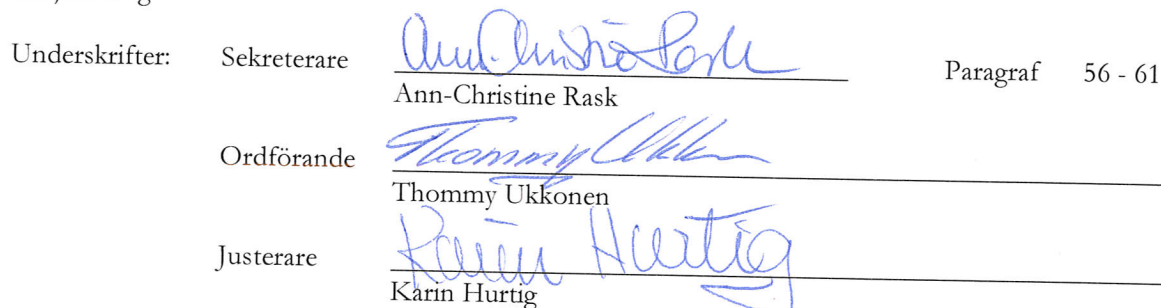 Underskrifter: Sekreterare Ann-Christine Rask Paragraf 56 - 61
Ann-Christine Rask
Ordförande Thommy Ukkonen
Thommy Ukkonen
Justerare Karin Hurtig
Karin Hurtig